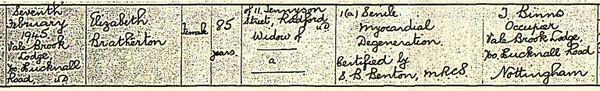 Seventh
February
1945
Vale Brook
Lodge,
70, Bucknall
Road, U.D.
Elizabeth
Bratherton
Female
85
years
of 11, Tennyson
Street, Radford
U.D.
Widow of
a
1(a) Senile
Myocardial
Degeneration.
Certified by
S. B. Benton, M.R.C.S.
J. Binns
Occupier
Vale Brook Lodge,
70, Bucknall Road
Nottingham